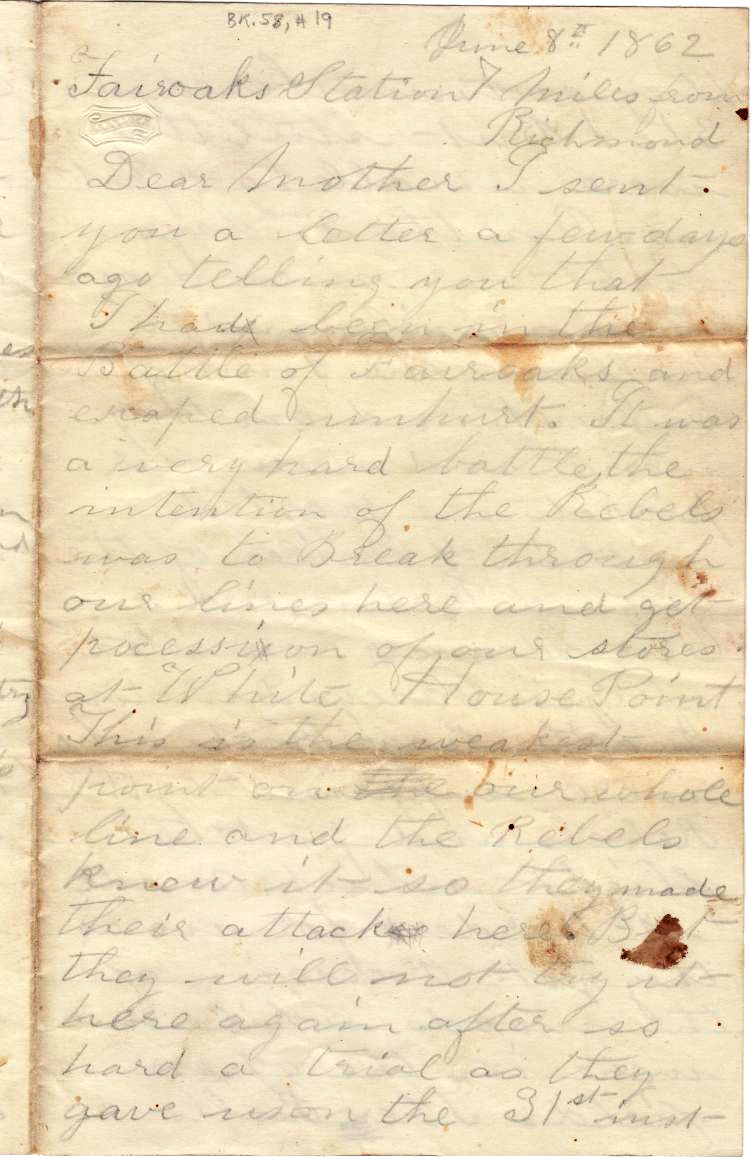 BK.58, #19
June 8th 1862
Fairoaks Station 7 miles from
Richmond
Dear Mother I sent
you a letter a few days
ago telling you that
I had been in the
Battle of Fairoaks and
escaped unhurt. It was
a very hard battle, the
intention of the Rebels
was to Break through
our lines here and get
pocession of our stores
at White House Point
This is the weakest
point on our whole
line and the Rebels
knew it so they made
their attack here. But
they will not try it
here again after so
hard a trial as they
gave us on the 31st inst
es
th
try